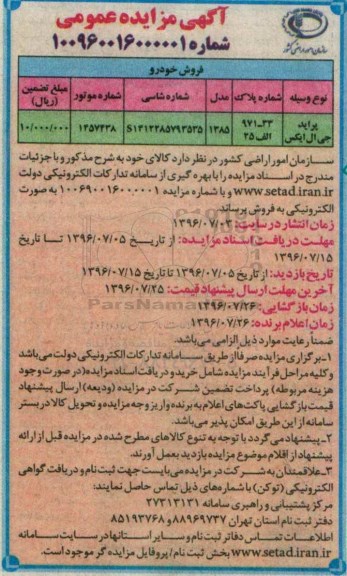 آگهی مزایده عمومی
شماره ۱۰۰۹۶۰۰۱۶۰۰۰۰۰۱
سازمان امور اراضی کشور
فروش خودرو
نوع وسیله شماره پلاک مدل شماره شاسی شماره موتور مبلغ تضمین (ریال)
پراید جی ال ایکس ۳۳-۹۷۱ الف ۲۵ ۱۳۸۵ S۱۴۱۲۲۸۵۷۹۳۵۳۵ ۱۴۵۷۴۳۸ ۱۰/۰۰۰/۰۰۰
سازمان امور اراضی کشور در نظر دارد کالای خود به شرح مذکور و با جزئیات
مندرج در اسناد مزایده را با بهره گیری از سامانه تدارکات الکترونیکی دولت
www.setad.iran.ir و با شماره مزایده ۱۰۰۶۹۰۰۱۶۰۰۰۰۰۱ به صورت
الکترونیکی به فروش برساند.
زمان انتشار در سایت: ۱۳۹۶/۰۷/۰۳
مهلت دریافت اسناد مزایده: از تاریخ ۱۳۹۶/۰۷/۰۵ تا تاریخ
۱۳۹۶/۰۷/۱۵
تاریخ بازدید: از تاریخ ۱۳۹۶/۰۷/۰۵ تا تاریخ ۱۳۹۶/۰۷/۱۵
آخرین مهلت ارسال پیشنهاد قیمت: ۱۳۹۶/۰۷/۲۵
زمان بازگشایی: ۱۳۹۶/۰۷/۲۶
زمان اعلام برنده: ۱۳۹۶/۰۷/۲۶
ضمناً رعایت موارد ذیل الزامی می‌باشد.
۱-برگزاری مزایده صرفا از طریق سامانه تدارکات الکترونیکی دولت می‌باشد
و کلیه مراحل فرآیند مزایده شامل خرید و دریافت اسناد مزایده (در صورت وجود
هزینه مربوطه) پرداخت تضمین شرکت در مزایده (ودیعه) ارسال پیشنهاد
قیمت بازگشایی پاکت‌های اعلام به برنده واریز وجه مزایده و تحویل کالا در بستر
سامانه از این طریق امکان پذیر می‌باشد.
۲-پیشنهاد می‌گردد با توجه به تنوع کالاهای مطرح شده در مزایده قبل از ارائه
پیشنهاد از اقلام موضوع مزایده بازدید بعمل آورند.
۳-علاقمندان به شرکت در مزایده می‌بایست جهت ثبت نام و دریافت گواهی
الکترونیکی (توکن) با شماره‌های ذیل تماس حاصل نمایند:
مرکز پشتیبانی و راهبری سامانه ۲۷۳۱۳۱۳۱
دفتر ثبت نام استان تهران ۸۸۹۶۹۷۳۷ و ۸۵۱۹۳۷۶۸
اطلاعات تماس دفاتر ثبت نام و سایر استانها در سایت سامانه
www.setad.iran.ir بخش ثبت نام/ پروفایل مزایده گر موجود است.